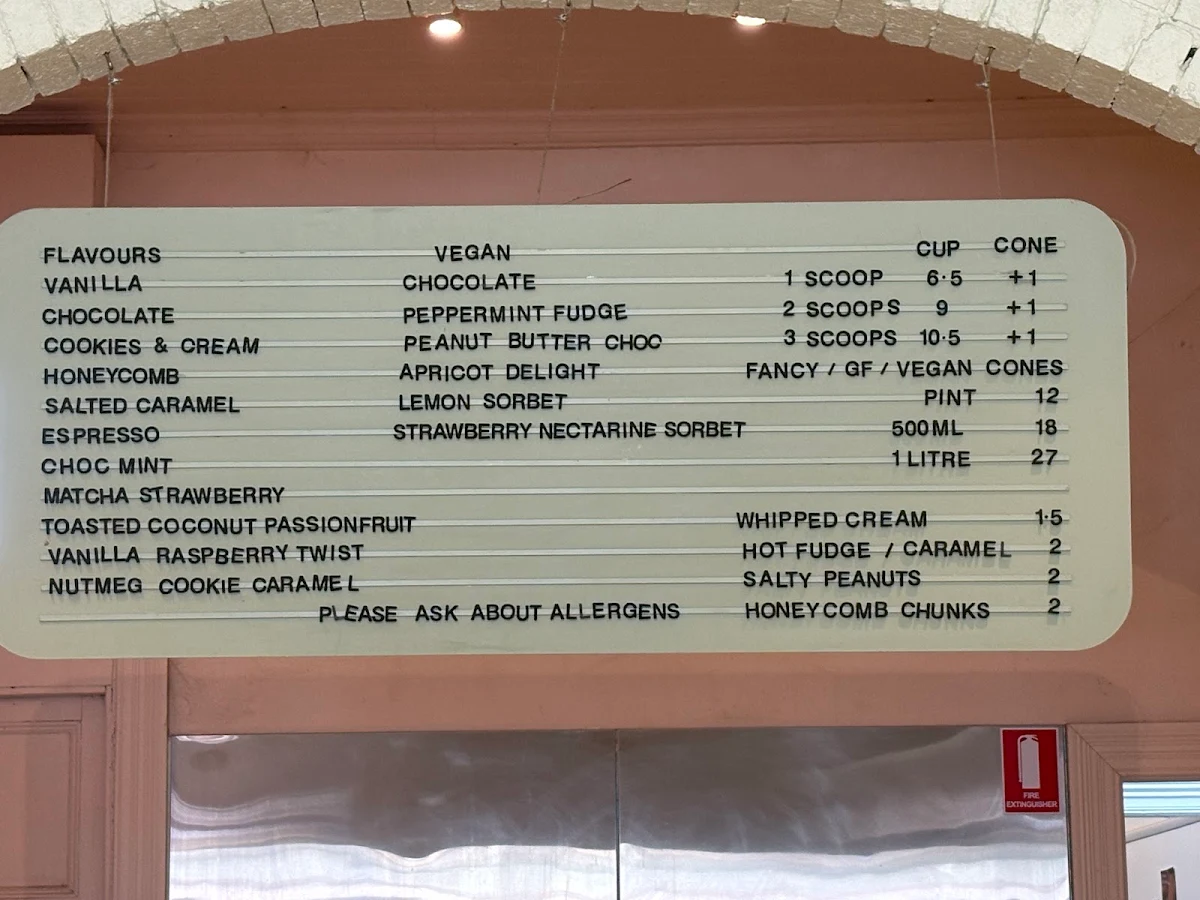 FLAVOURS VEGAN CUP CONE
VANILLA CHOCOLATE 1 SCOOP 6·5 +1
CHOCOLATE PEPPERMINT FUDGE 2 SCOOPS 9 +1
COOKIES & CREAM PEANUT BUTTER CHOC 3 SCOOPS 10·5 +1
HONEYCOMB APRICOT DELIGHT FANCY / GF / VEGAN CONES
SALTED CARAMEL LEMON SORBET PINT 12
ESPRESSO STRAWBERRY NECTARINE SORBET 500ML 18
CHOC MINT 1 LITRE 27
MATCHA STRAWBERRY
TOASTED COCONUT PASSIONFRUIT WHIPPED CREAM 1·5
VANILLA RASPBERRY TWIST HOT FUDGE / CARAMEL 2
NUTMEG COOKIE CARAMEL SALTY PEANUTS 2
PLEASE ASK ABOUT ALLERGENS HONEYCOMB CHUNKS 2
FIRE
EXTINGUISHER